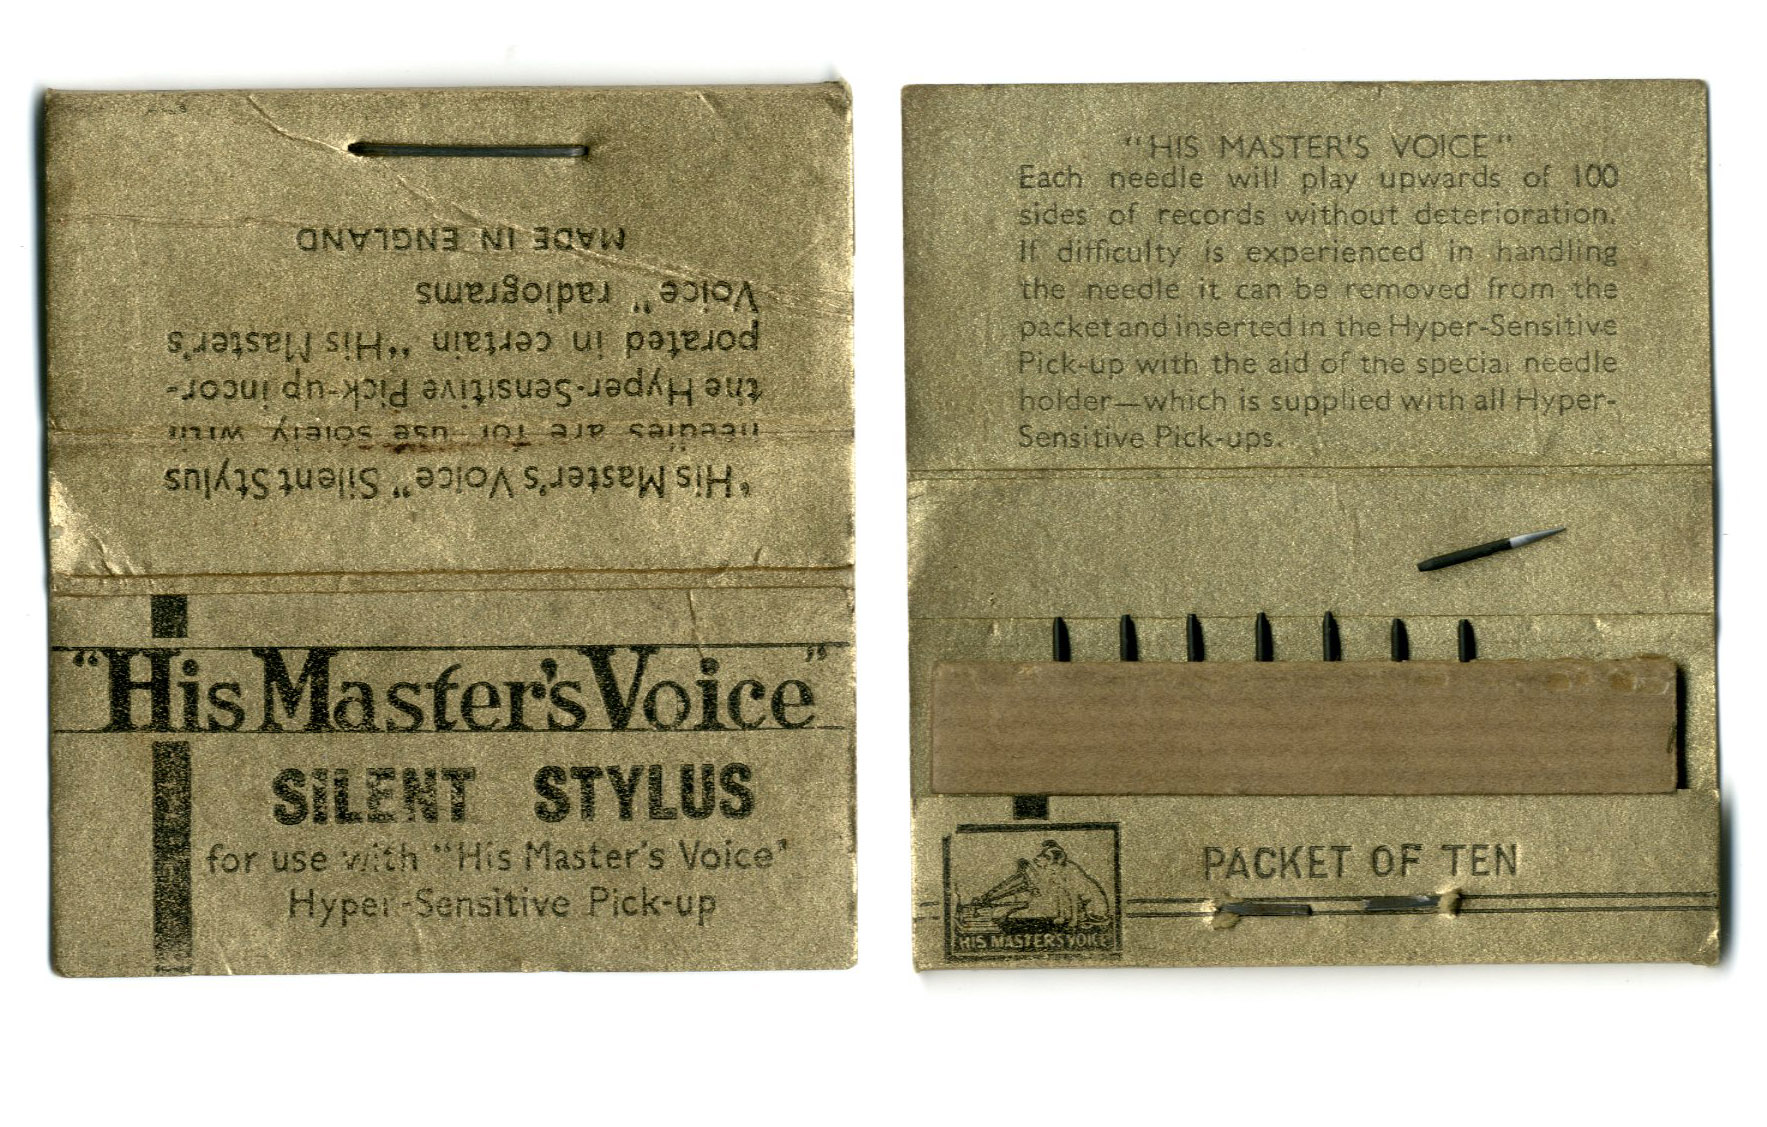 "His Master's Voice" Silent Stylus
needles are for use solely with
the Hyper-Sensitive Pick-up incor-
porated in certain "His Master's
Voice" radiograms
MADE IN ENGLAND
"His Master's Voice"
SILENT STYLUS
for use with "His Master's Voice"
Hyper-Sensitive Pick-up
"HIS MASTER'S VOICE"
Each needle will play upwards of 100
sides of records without deterioration.
If difficulty is experienced in handling
the needle it can be removed from the
packet and inserted in the Hyper-Sensitive
Pick-up with the aid of the special needle
holder—which is supplied with all Hyper-
Sensitive Pick-ups.
PACKET OF TEN
HIS MASTER'S VOICE